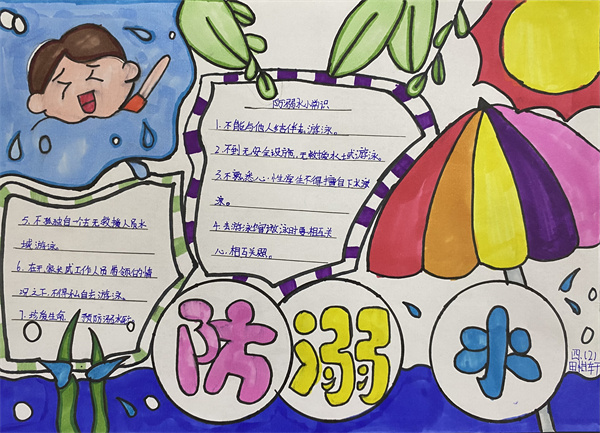 防溺水小常识
1.不能与他人结伴去游泳。
2.不到无安全设施,无救援水域游泳。
3.不熟悉水性学生不得擅自下水游
泳。
4.去游泳 时要相互关
心,相互关照。
5.不 独自一个去无救援人员水
域游泳。
6.在无家长或工作人员带领的情
况之下不得私自去游泳。
7.珍爱生命 预防溺水
防溺水
四.(2)
田 轩